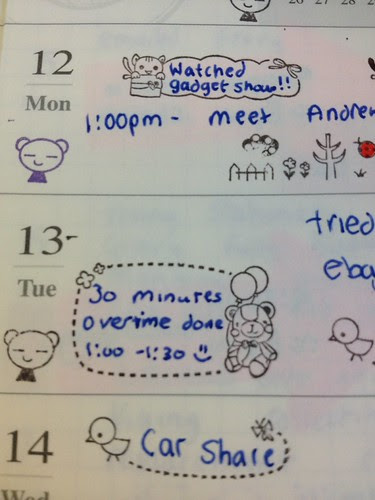 26 27 28
12
Mon
Watched
gadget show!!
1:00pm - meet Andrew
13-
Tue
tried
ebay
30 minutes
overtime done
1:00 - 1:30
14
Wed
Car Share